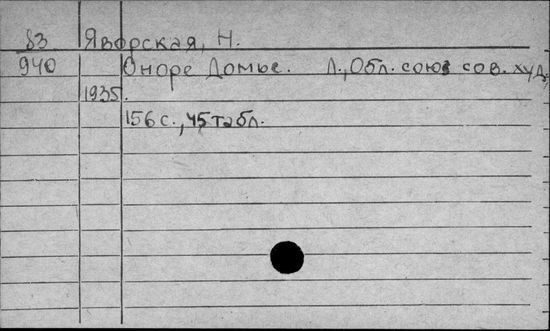 83 Яворская, Н.
940 Оноре Домье. Л., Обл. союз сов. худ.,
1935.
156 с., 45 табл.